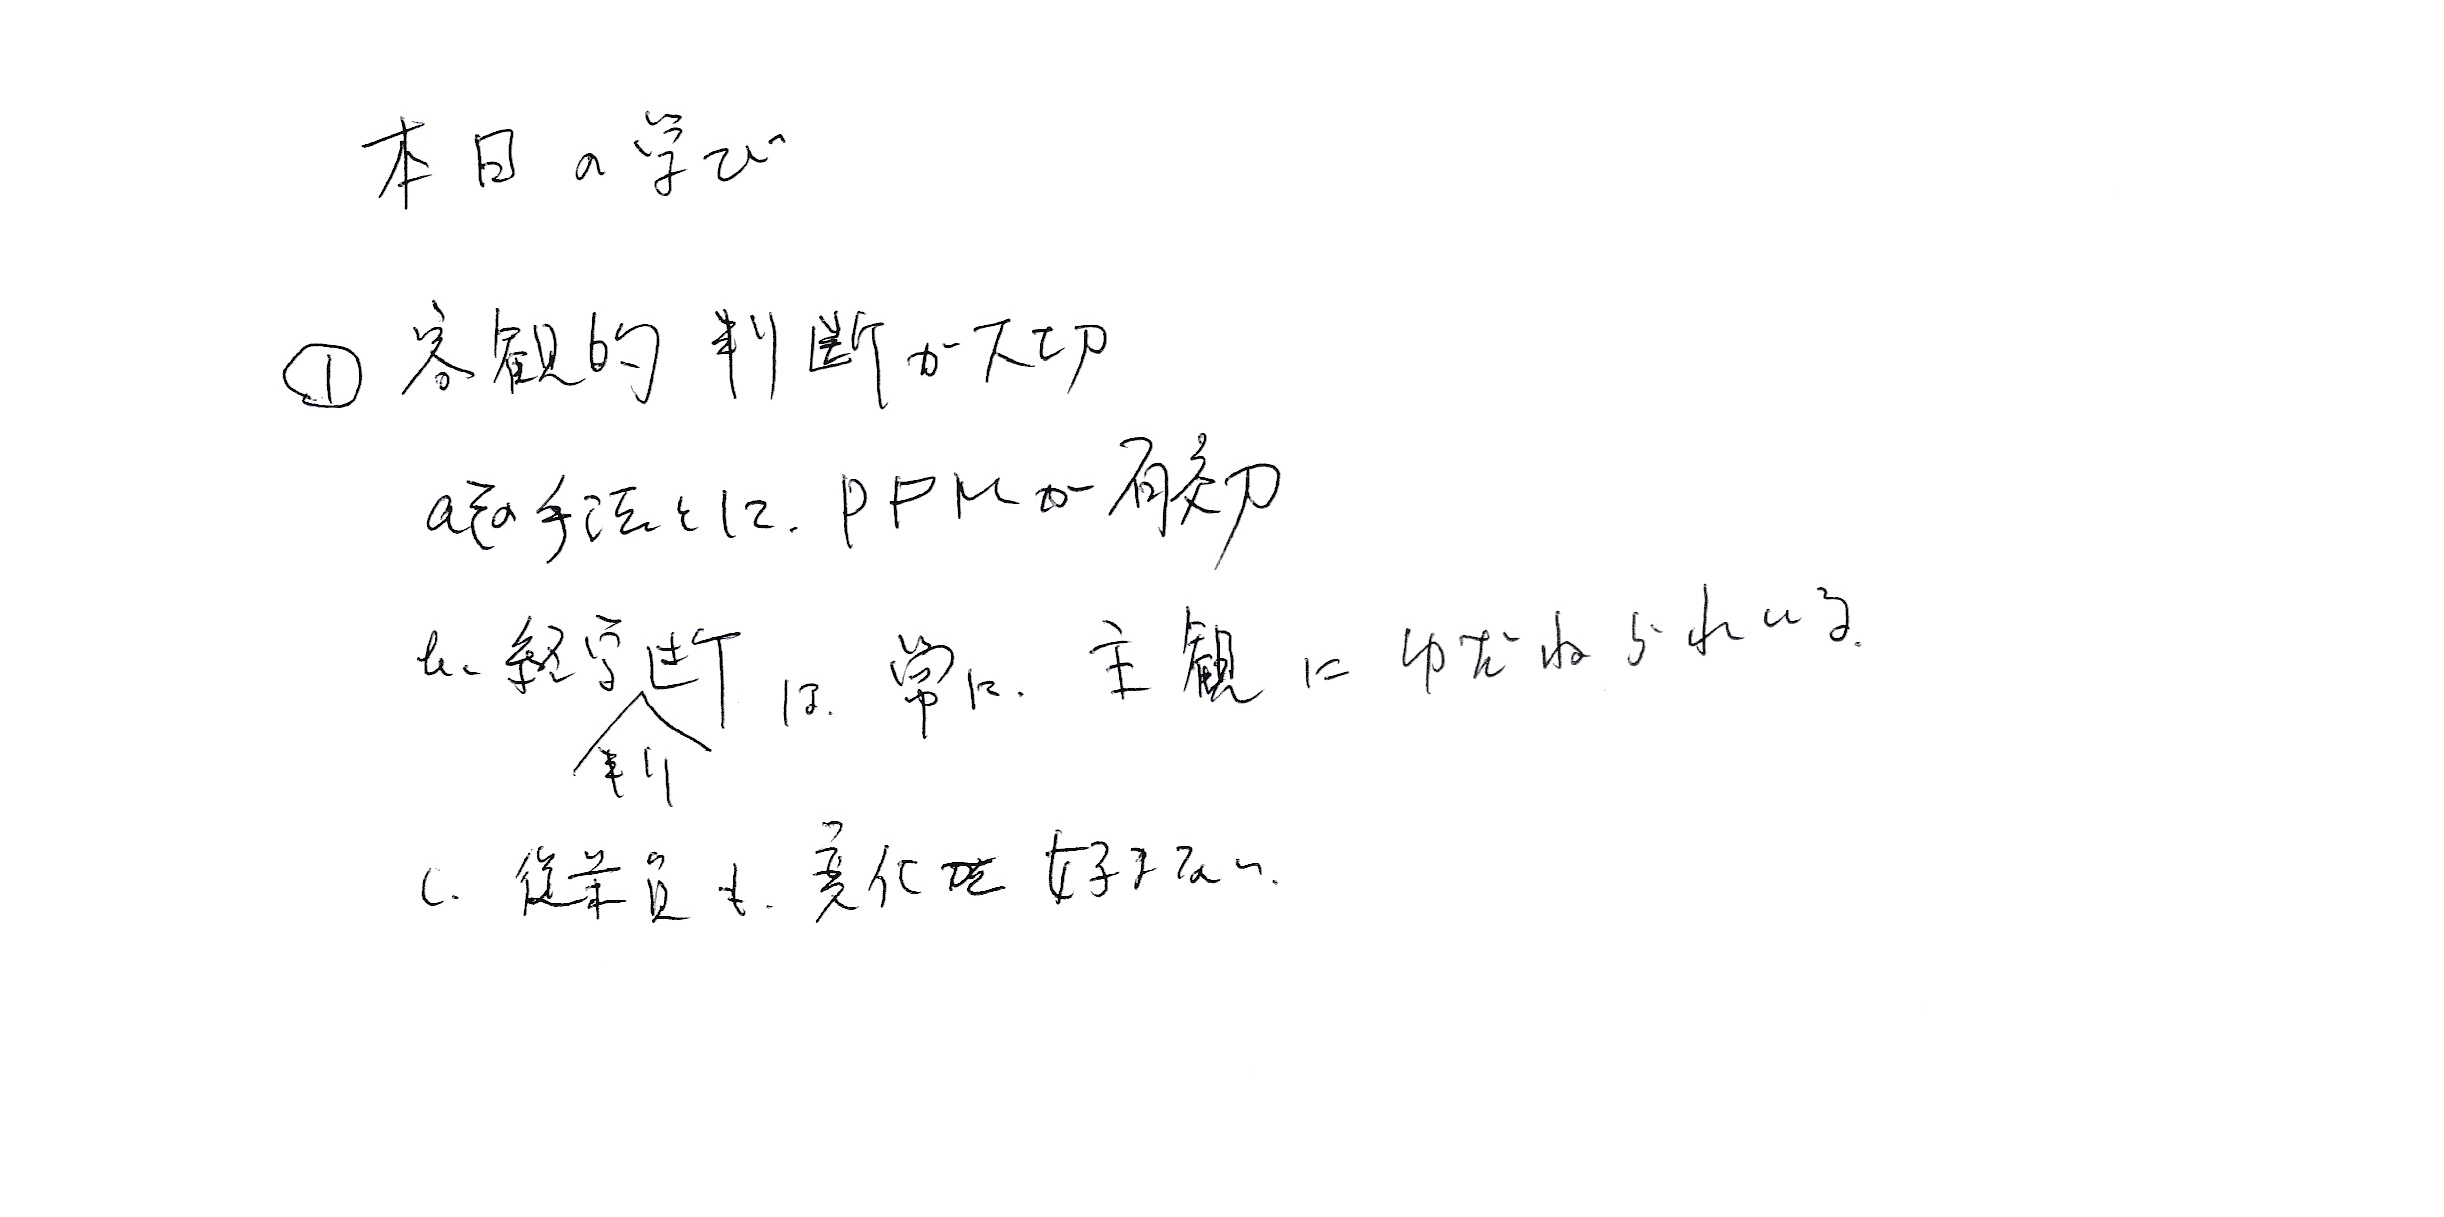 本日の学び
① 客観的判断が大切
a その手法として、PPMが有効
b、経営判断は、常に、主観にゆだねられいる.
c. 従業員も、変化を好まない.